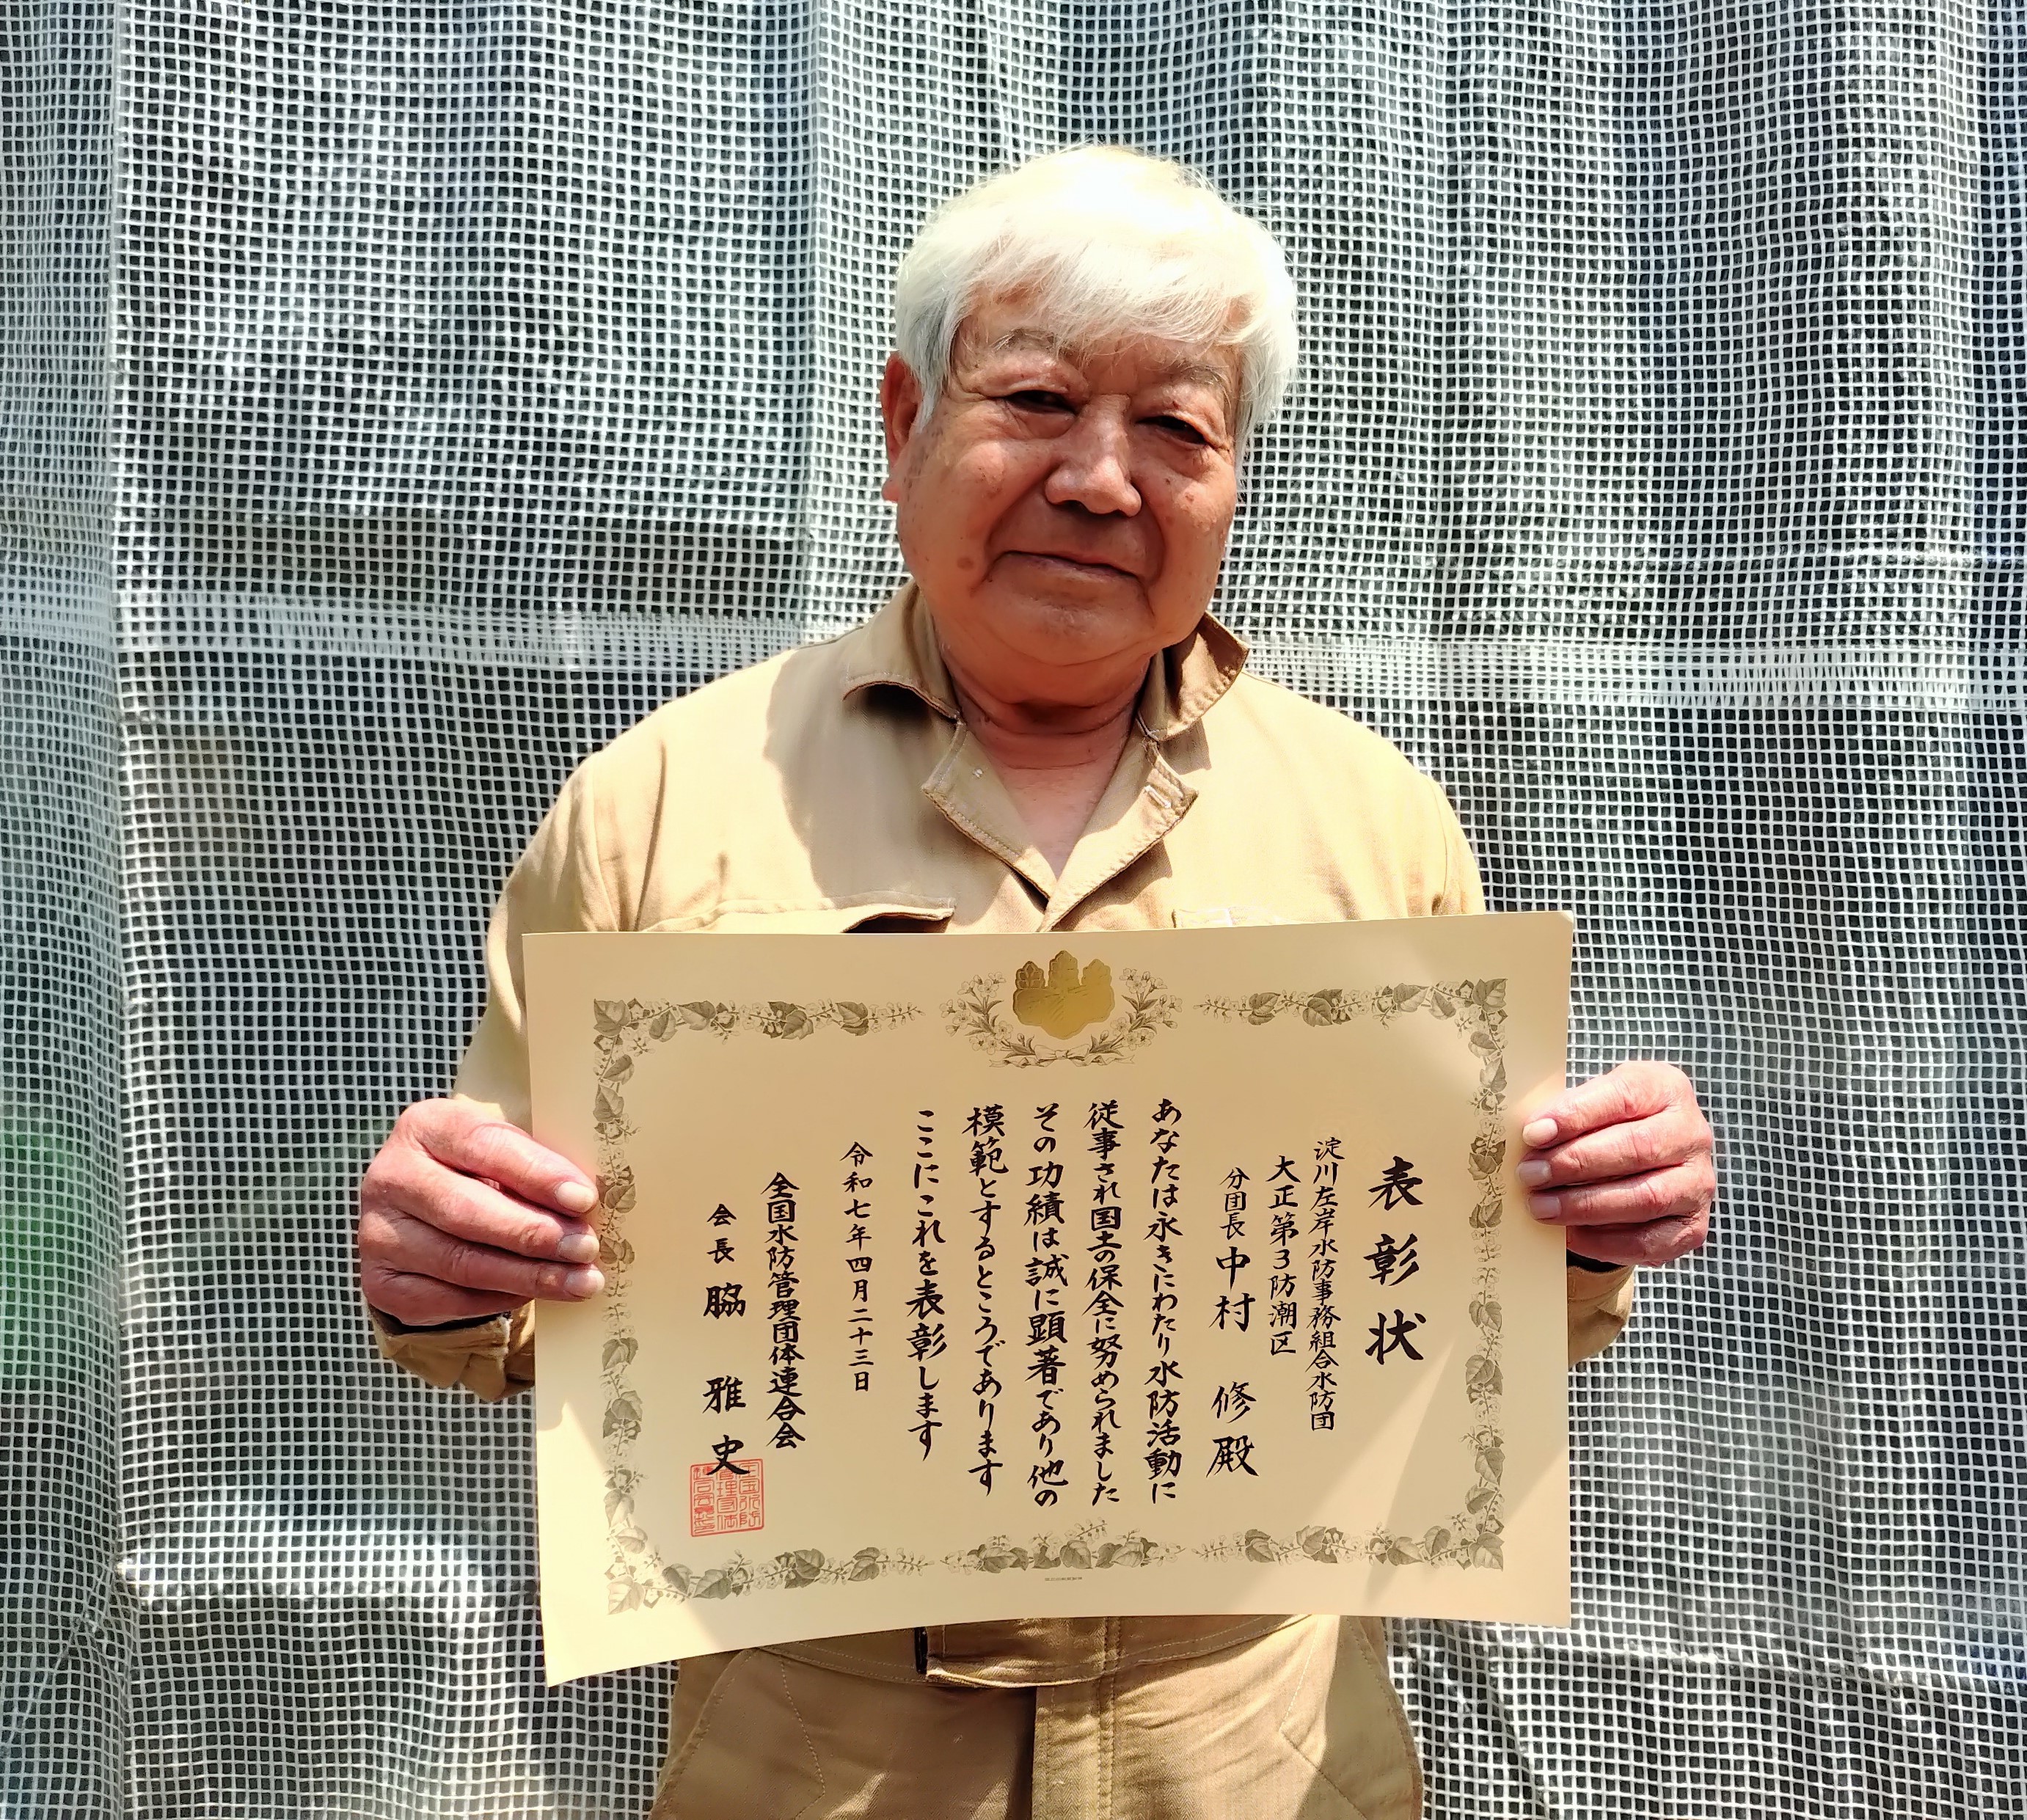 表彰状
淀川左岸水防事務組合水防団
大正第3防潮区
分団長 中村 修殿
あなたは永きにわたり水防活動に
従事され国土の保全に努められました
その功績は誠に顕著であり他の
模範とするところであります
ここにこれを表彰します
令和七年四月二十三日
全国水防管理団体連合会
会長 脇 雅史